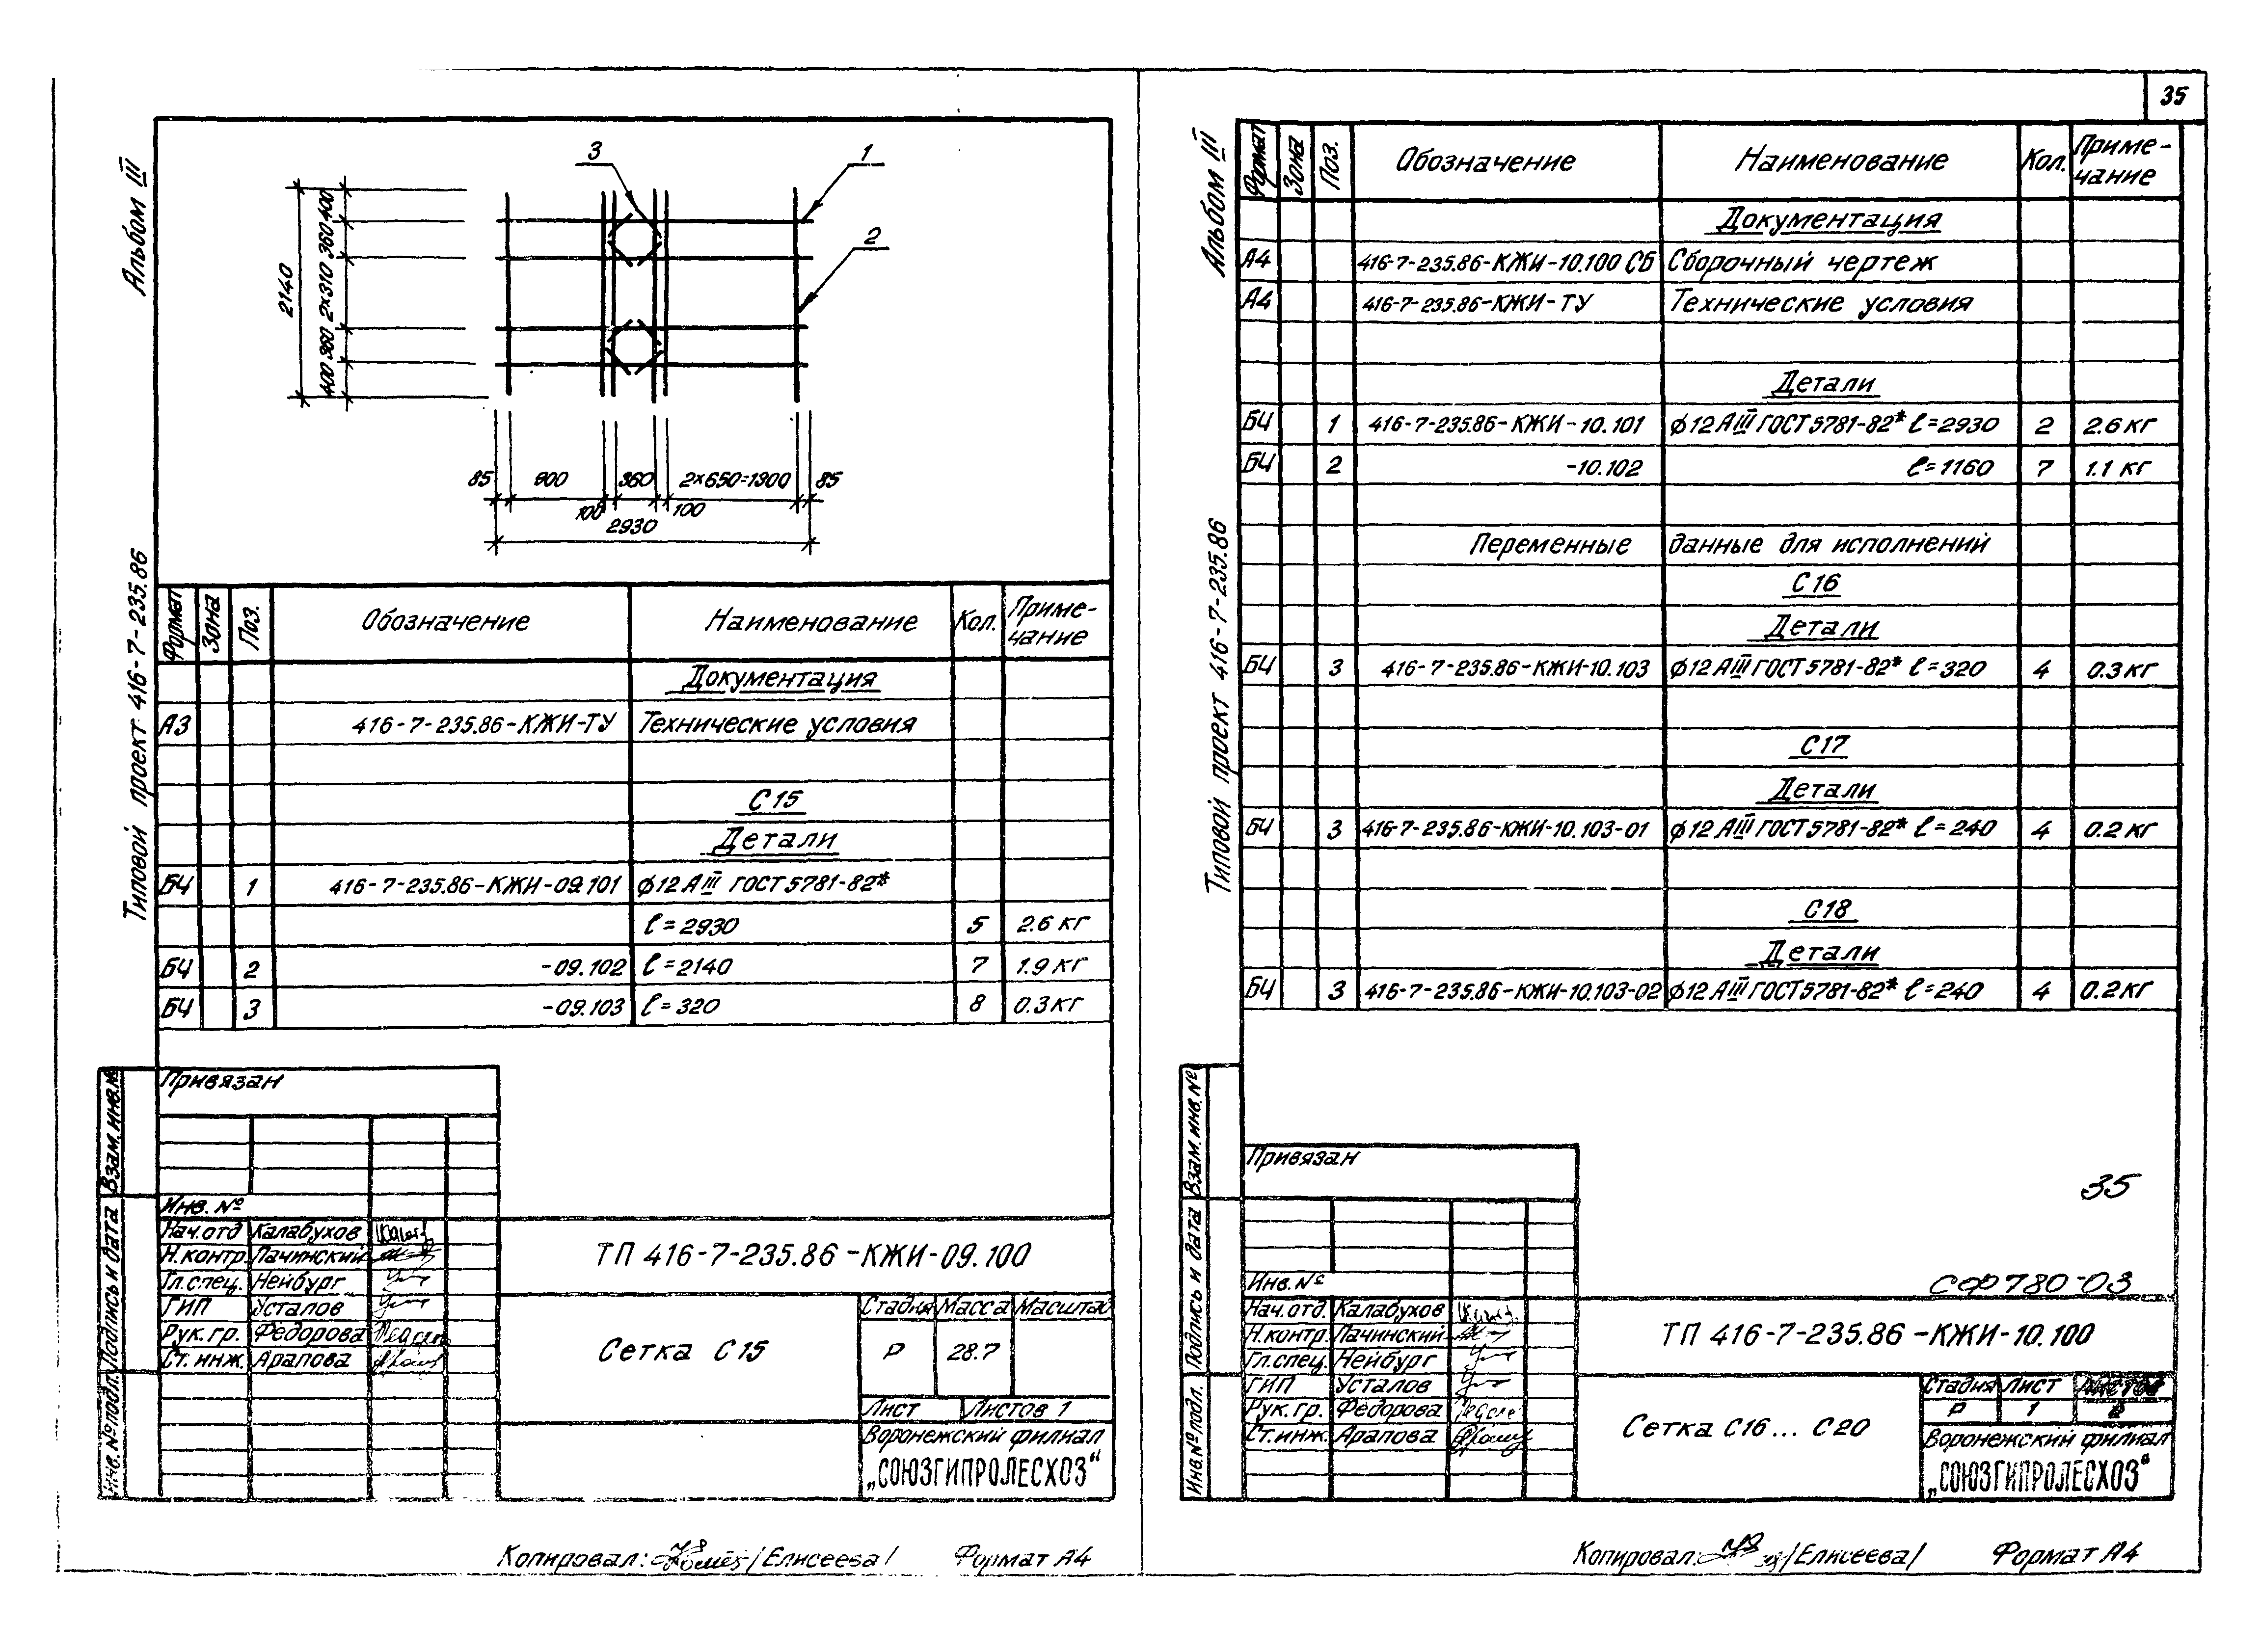 Альбом III
Типовой проект 416-7-235.86
3
1
2
2140
400 360 2×310 360 400
85 900 360 2×650=1300 85
100 100
2930
Формат Зона Поз. Обозначение Наименование Кол. Приме-
чание
Документация
А3 416-7-235.86-КЖИ-ТУ Технические условия
С15
Детали
БЧ 1 416-7-235.86-КЖИ-09.101 ф12 АIII ГОСТ 5781-82*
ℓ=2930 5 2.6 кг
БЧ 2 -09.102 ℓ=2140 7 1.9 кг
БЧ 3 -09.103 ℓ=320 8 0.3кг
Привязан
Инв. №
Взам. инв. №
Подпись и дата
Инв. № подл.
Нач.отд Калабухов
Н.контр. Пачинский
Гл.спец. Нейбург
ГИП Усталов
Рук.гр. Федорова
Ст.инж. Арапова
ТП 416-7-235.86-КЖИ-09.100
Сетка С15
Стадия Масса Масштаб
Р 28.7
Лист Листов 1
Воронежский филиал
„СОЮЗГИПРОЛЕСХОЗ“
Копировал: /Елисеева/ Формат А4
35
Альбом III
Типовой проект 416-7-235.86
Формат Зона Поз. Обозначение Наименование Кол. Приме-
чание
Документация
А4 416-7-235.86-КЖИ-10.100 СБ Сборочный чертеж
А4 416-7-235.86-КЖИ-ТУ Технические условия
Детали
БЧ 1 416-7-235.86-КЖИ-10.101 ф12 АIII ГОСТ 5781-82* ℓ=2930 2 2.6 кг
БЧ 2 -10.102 ℓ=1160 7 1.1 кг
Переменные данные для исполнений
С16
Детали
БЧ 3 416-7-235.86-КЖИ-10.103 ф12 АIII ГОСТ 5781-82* ℓ=320 4 0.3кг
С17
Детали
БЧ 3 416-7-235.86-КЖИ-10.103-01 ф12 АIII ГОСТ 5781-82* ℓ=240 4 0.2 кг
С18
Детали
БЧ 3 416-7-235.86-КЖИ-10.103-02 ф12 АIII ГОСТ 5781-82* ℓ=240 4 0.2кг
Привязан
Инв. №
Взам. инв. №
Подпись и дата
Инв. № подл.
35
СФ 780-03
Нач.отд. Калабухов
Н.контр. Пачинский
Гл.спец. Нейбург
ГИП Усталов
Рук.гр. Федорова
Ст.инж. Арапова
ТП 416-7-235.86-КЖИ-10.100
Сетка С16... С20
Стадия Лист Листов
Р 1
Воронежский филиал
„СОЮЗГИПРОЛЕСХОЗ“
Копировал: /Елисеева/ Формат А4